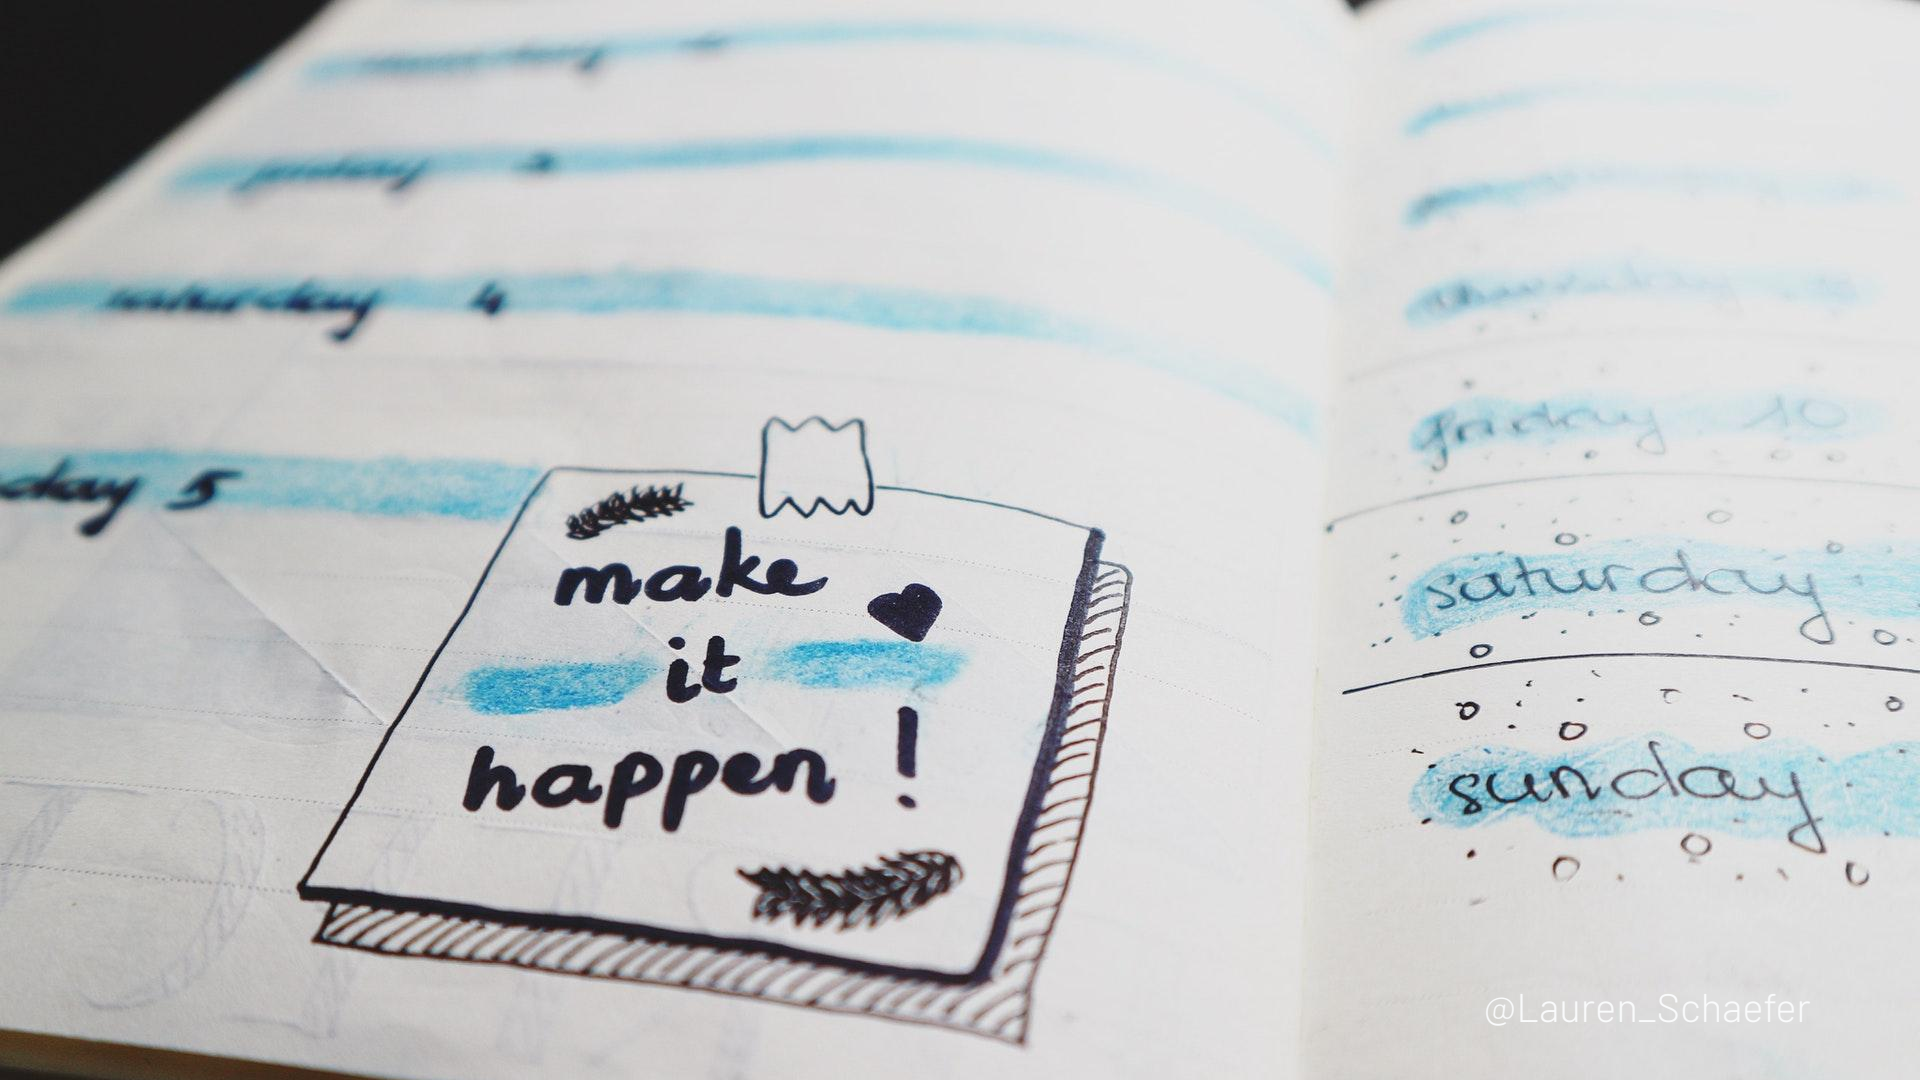 saturday 4
day 5
make
it
happen !
friday 10
saturday
sunday
@Lauren_Schaefer